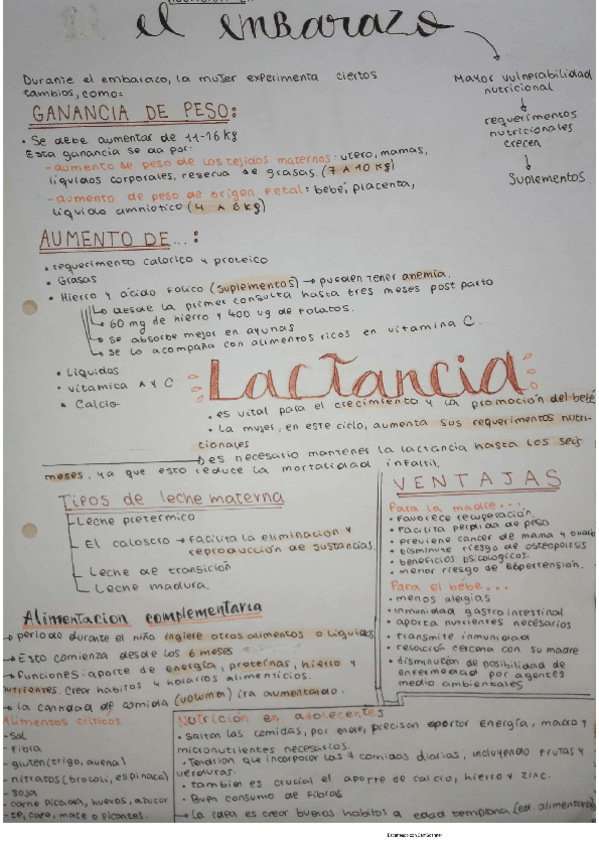 el embarazo
Durante el embarazo, la mujer experimenta ciertos
cambios, como:
Mayor vulnerabilidad
nutricional
requerimentos
nutricionales
crecen
Suplementos
GANANCIA DE PESO:
• Se debe aumentar de 11-16 kg
Esta ganancia se da por:
- aumento de peso de los tejidos maternos: utero, mamas,
liquidos corporales, reserva de grasas (7 a 10 kg)
- aumento de peso de origen fetal: bebé, placenta,
liquido amniotico (4 a 6 kg)
AUMENTO DE...:
• requerimento calorico y proteico
• Grasas
• Hierro y ácido folico (suplementos) → pueden tener anemia.
↳ desde la primer consulta hasta tres meses post parto
↳ 60 mg de hierro y 400 ug de folatos.
↳ se absorbe mejor en ayunas
↳ se lo acompaña con alimentos ricos en vitamina C.
• Liquidos
• vitamica A y C
• Calcio
Lactancia
• es vital para el crecimiento y la promoción del bebé
• La mujer, en este ciclo, aumenta sus requerimentos nutri-
cionales
↳ es necesario mantener la lactancia hasta los seis
meses, ya que esto reduce la mortalidad infantil.
Tipos de leche materna
Leche pretermico
El calostro → facilita la eliminacion y
reproducción de sustancias
Leche de transición
Leche madura.
VENTAJAS
Para la madre...
• favorece recuperación.
• Facilita perdida de peso
• previene cancer de mama y ovario
• disminuye riesgo de osteoporosis
• beneficios psicologicos.
• menor riesgo de hipertensión.
Para el bébe...
• menos alergias
• inmunidad gastrointestinal
• aporta nutrientes necesarios
• transmite inmunidad
• relación cercana con su madre
• disminución de posibilidad de
enfermedad por agentes
medio ambientales
Alimentacion complementaria
→ período durante el niño ingiere otros alimentos o liquidos
→ Esto comienza desde los 6 meses
→ funciones: aporte de energia, proteinas, hierro y
nutrientes. Crear habitos y horarios alimenticios.
→ la cantidad de comida (volumen) ira aumentando.
Alimentos criticos
- Sal
- Fibra
- gluten (trigo, avena)
- nitratos (brocoli, espinaca)
- soja
- carne picada, huevos, azucar
- te, cafe, mate o picantes.
Nutrición en adolecentes
• Saltan las comidas, por ende, precisan aportar energia, macro y
micronutrientes necesarios.
• Tendrian que incorporar las 4 comidas diarias, incluyendo frutas y
verduras.
• tambien es crucial el aporte de calcio, hierro y zinc.
• Buen consumo de fibras
• La idea es crear buenos habitos a edad temprana (ed. alimentaria)
Escaneado con CamScanner